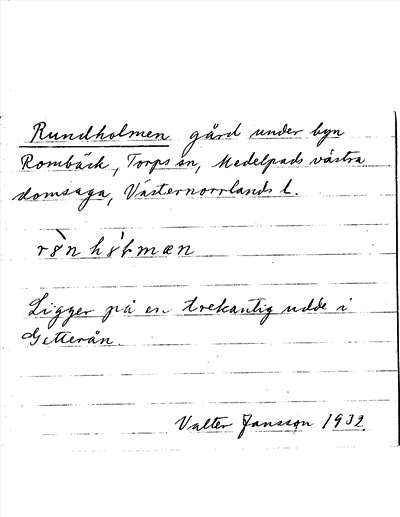 Rundholmen gård under byn
Rombäck, Torps sn, Medelpads västra
domsaga, Västernorrlands l.
Ligger på en trekantig udde i
Getterån
Valter Jansson 1932